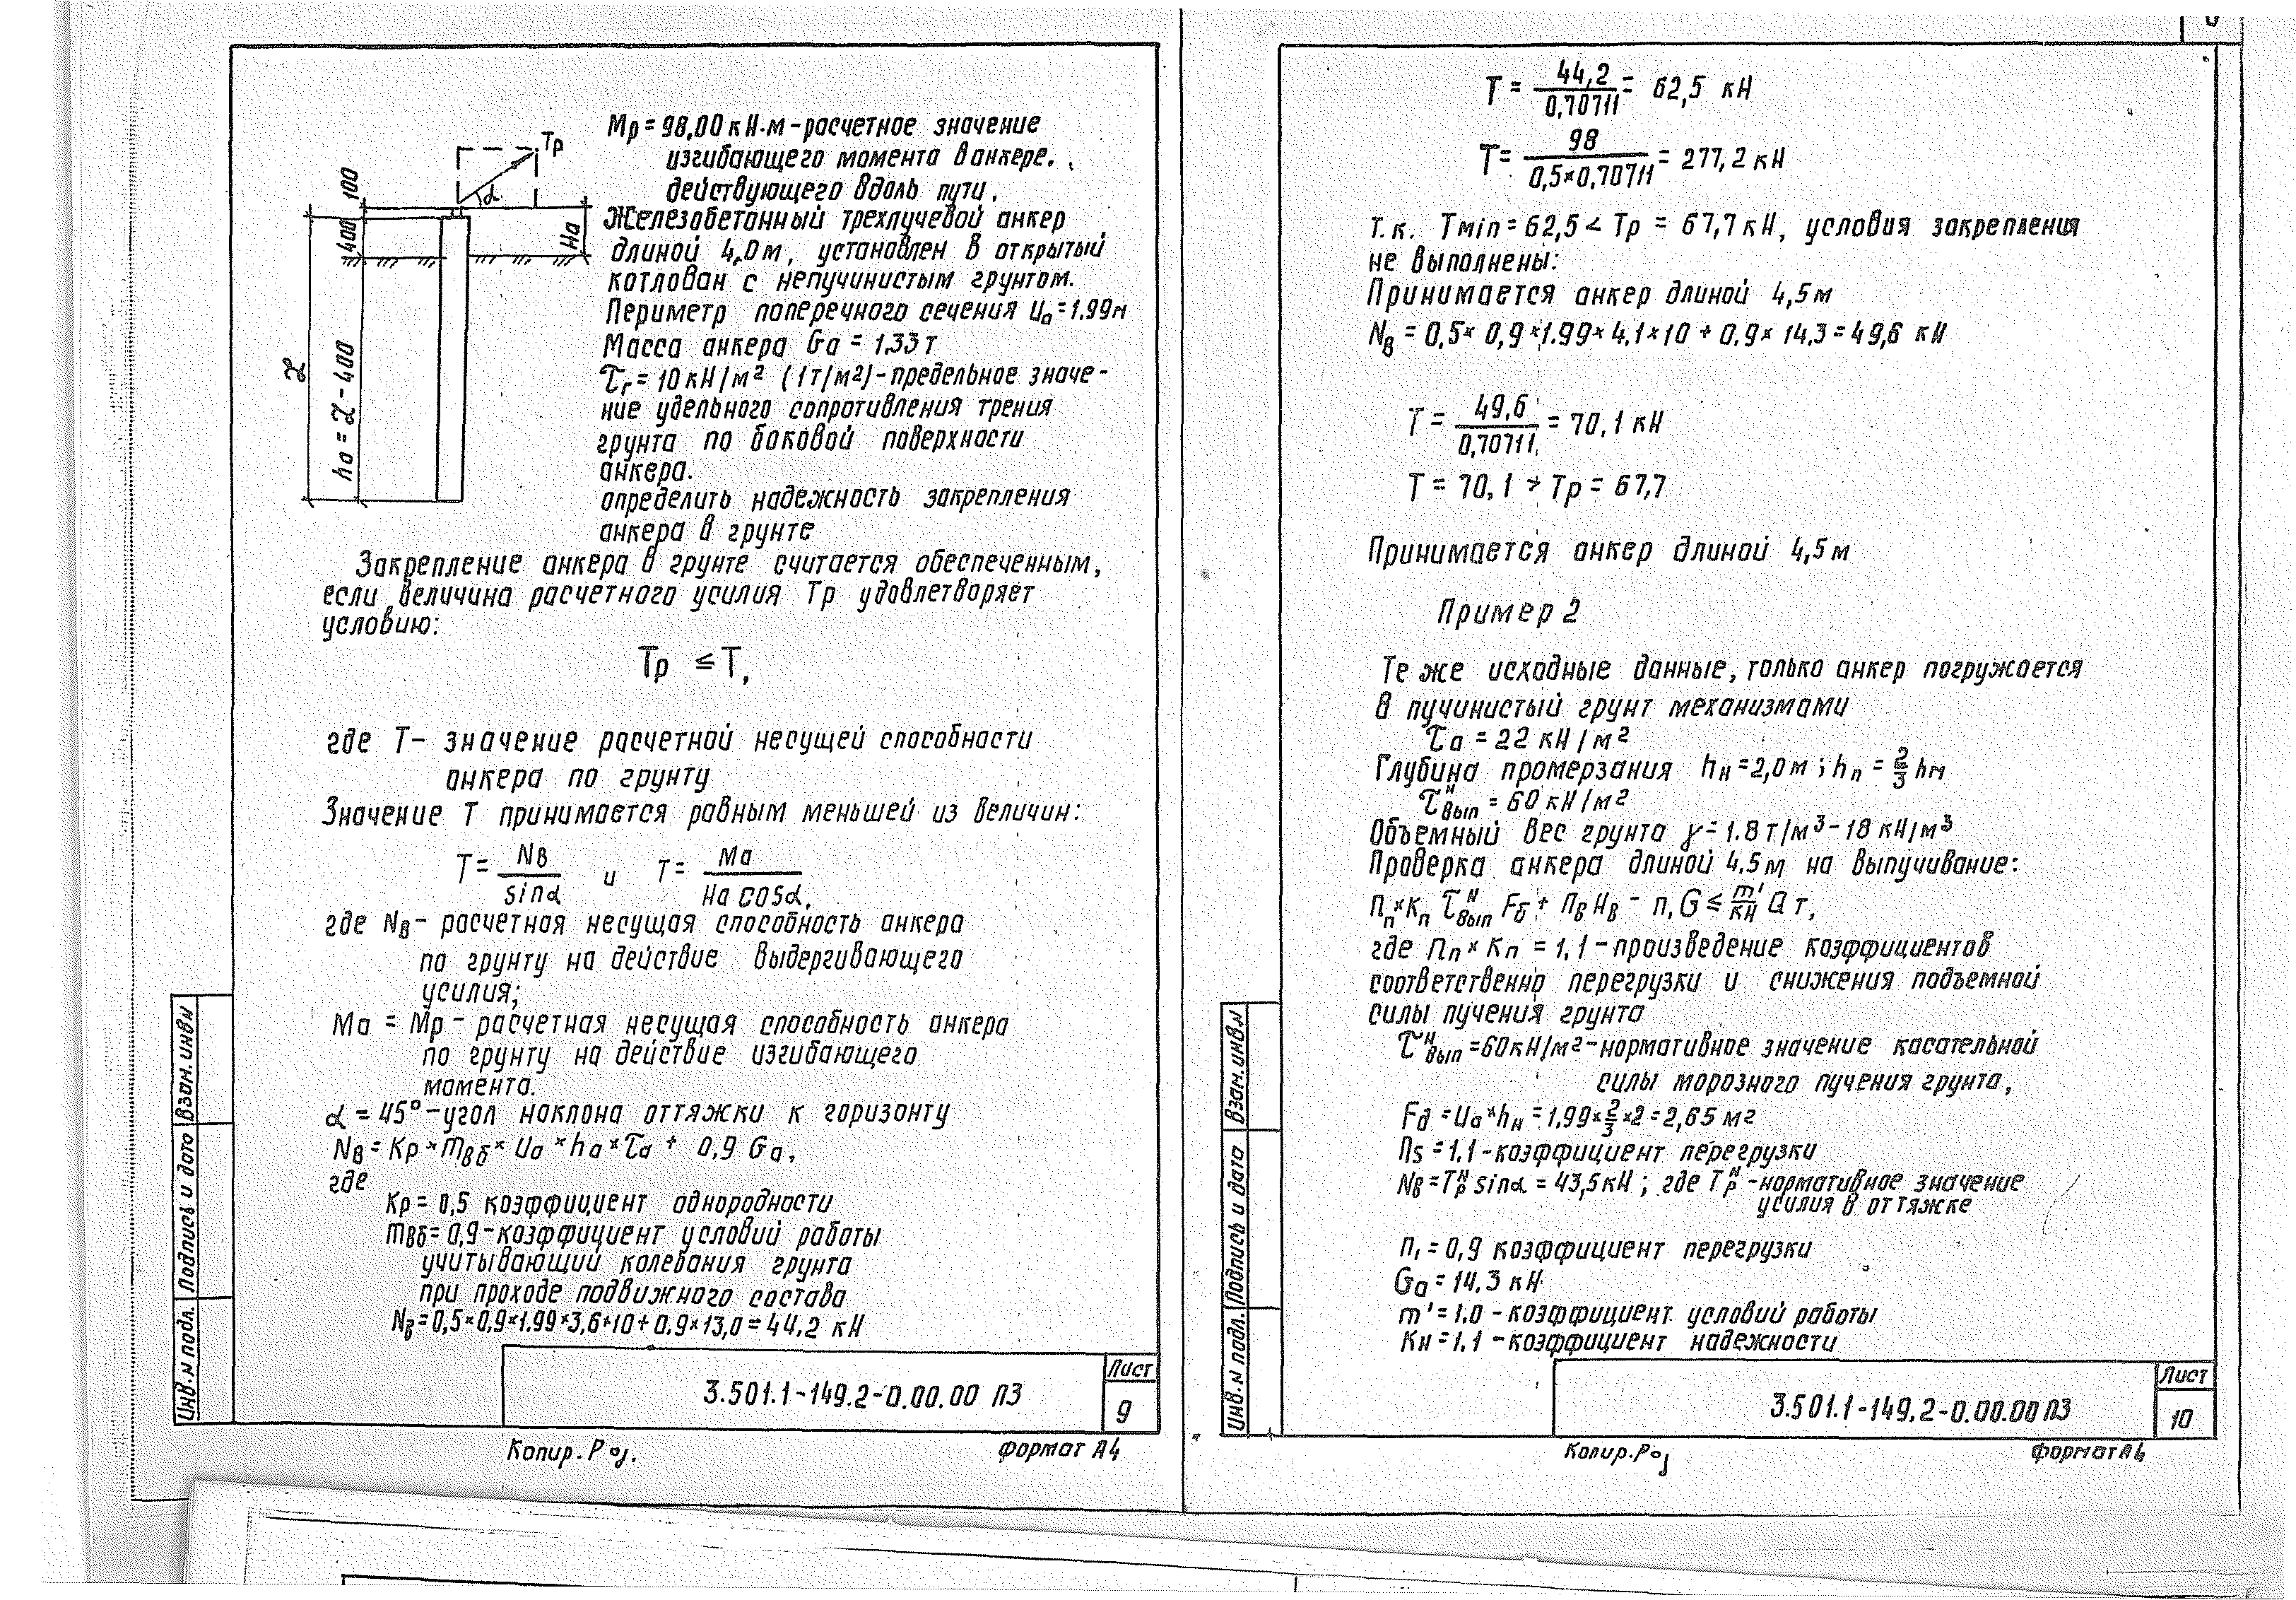 100
400
Tр
α
Hа
ℒ
hа = ℒ - 400
Mр = 98,00 кН·м - расчетное значение
изгибающего момента в анкере.
действующего вдоль пути.
Железобетонный трехлучевой анкер
длиной 4,0 м, установлен в открытый
котлован с непучинистым грунтом.
Периметр поперечного сечения Uа = 1.99 м
Масса анкера Gа = 1,33 т
τг = 10 кН/м² (1т/м²) - предельное значе-
ние удельного сопротивления трения
грунта по боковой поверхности
анкера.
определить надежность закрепления
анкера в грунте
Закрепление анкера в грунте считается обеспеченным,
если величина расчетного усилия Tр удовлетворяет
условию:
Tр ≤ T,
где T - значение расчетной несущей способности
анкера по грунту
Значение T принимается равным меньшей из величин:
T = Nв / sinα и T = Mа / Hа cosα,
где Nв - расчетная несущая способность анкера
по грунту на действие выдергивающего
усилия;
Mа = Mр - расчетная несущая способность анкера
по грунту на действие изгибающего
момента.
α = 45° - угол наклона оттяжки к горизонту
Nв = Kр × mвб × Uа × hа × τа + 0,9 Gа,
где
Kр = 0,5 коэффициент однородности
mвб = 0,9 - коэффициент условий работы
учитывающий колебания грунта
при проходе подвижного состава
Nв = 0,5 × 0,9 × 1.99 × 3,6 + 10 + 0.9 × 13,0 = 44,2 кН
Инв. N подл. Подпись и дата Взам. инв N
3.501.1-149.2-0.00.00 ПЗ
Лист
9
Копир. Роj.
формат А4
T = 44,2 / 0,70711 = 62,5 кН
T = 98 / 0,5 × 0,70711 = 277,2 кН
Т.к. Tmin = 62,5 < Tр = 67,7 кН, условия закрепления
не выполнены:
Принимается анкер длиной 4,5 м
Nв = 0,5 × 0,9 × 1.99 × 4,1 × 10 + 0.9 × 14,3 = 49,6 кН
T = 49,6 / 0,70711 = 70,1 кН
T = 70,1 > Tр = 67,7
Принимается анкер длиной 4,5 м
Пример 2
Те же исходные данные, только анкер погружается
в пучинистый грунт механизмами
τа = 22 кН/м²
Глубина промерзания hн = 2,0 м; hп = 2/3 hм
τвып^н = 60 кН/м²
Объемный вес грунта γ = 1.8 т/м³ - 18 кН/м³
Проверка анкера длиной 4,5 м на выпучивание:
nп × Kп τвып^н Fб + nв Hв - n₁ G ≤ m'/Kн Q т,
где nп × Kп = 1,1 - произведение коэффициентов
соответственно перегрузки и снижения подъемной
силы пучения грунта
τвып^н = 60 кН/м² - нормативное значение касательной
силы морозного пучения грунта,
Fд = Uа × hн = 1,99 × 2/3 × 2 = 2,65 м²
ns = 1.1 - коэффициент перегрузки
Nв = Tр^н sinα = 43,5 кН; где Tр^н - нормативное значение
усилия в оттяжке
n₁ = 0,9 коэффициент перегрузки
Gа = 14,3 кН
m' = 1.0 - коэффициент условий работы
Kн = 1.1 - коэффициент надежности
Инв. N подл. Подпись и дата Взам. инв N
3.501.1-149.2-0.00.00 ПЗ
Лист
10
Копир. Роj
формат А4